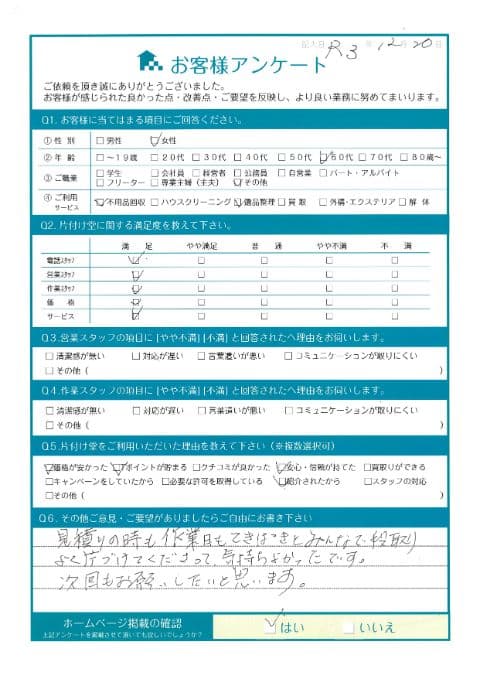 記入日 R3 年 12 月 20 日
お客様アンケート
ご依頼を頂き誠にありがとうございました。
お客様が感じられた良かった点・改善点・ご要望を反映し、より良い業務に努めてまいります。
Q1. お客様に当てはまる項目にご回答ください。
① 性 別 □男性 □女性
② 年 齢 □～19歳 □20代 □30代 □40代 □50代 □60代 □70代 □80歳～
③ ご職業 □学生 □会社員 □経営者 □公務員 □自営業 □パート・アルバイト
□フリーター □専業主婦（主夫） □その他
④ ご利用 サービス □不用品回収 □ハウスクリーニング □遺品整理 □買取 □外構・エクステリア □解体
Q2. 片付け堂に関する満足度を教えて下さい。
満 足 やや満足 普 通 やや不満 不 満
電話スタッフ □ □ □ □ □
営業スタッフ □ □ □ □ □
作業スタッフ □ □ □ □ □
価 格 □ □ □ □ □
サービス □ □ □ □ □
Q3. 営業スタッフの項目に [やや不満] [不満] と回答された人へ理由をお伺いします。
□清潔感が無い □対応が遅い □言葉遣いが悪い □コミュニケーションが取りにくい
□その他（ ）
Q4. 作業スタッフの項目に [やや不満] [不満] と回答された人へ理由をお伺いします。
□清潔感が無い □対応が遅い □言葉遣いが悪い □コミュニケーションが取りにくい
□その他（ ）
Q5. 片付け堂をご利用いただいた理由を教えて下さい（※複数選択可）
□価格が安かった □ポイントが貯まる □クチコミが良かった □安心・信頼が持てた □買取りができる
□キャンペーンをしていたから □必要な許可を取得している □紹介されたから □スタッフの対応
□その他（ ）
Q6. その他ご意見・ご要望がありましたらご自由にお書き下さい
見積りの時も作業日もてきぱきとみんなで段取り
よく片づけてくださって、気持ちよかったです。
次回もお願いしたいと思います。
ホームページ掲載の確認 □はい □いいえ
上記アンケートを掲載させて頂いても宜しいでしょうか？